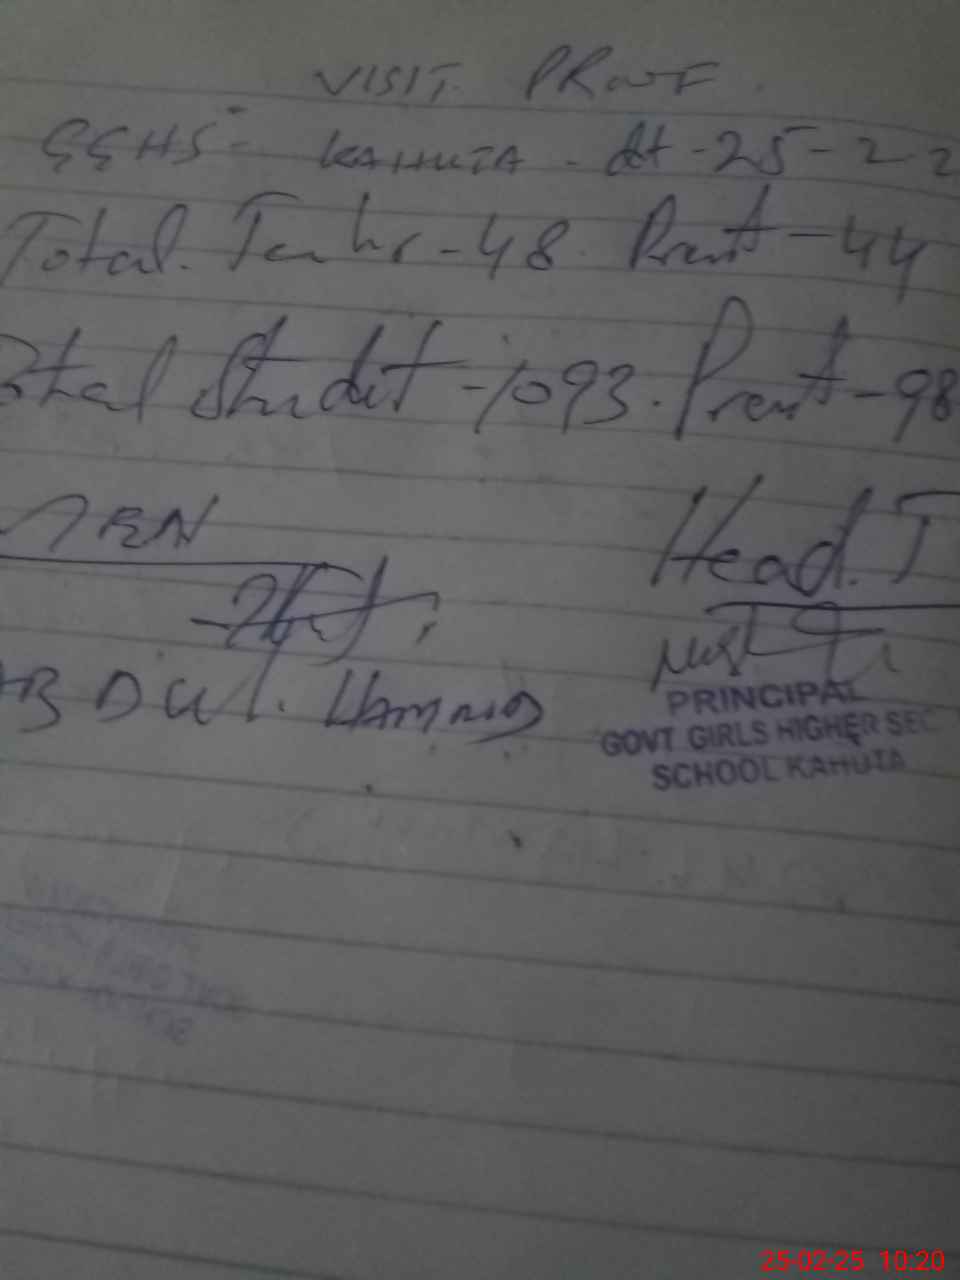 VISIT. PROOF.
GGHS - KAHUTA - dt - 25 - 2 - 2
Total. Teachr - 48. Present - 44
otal Student - 1093. Present - 98
Head. T
ABDUL. HAMMAD
PRINCIPAL
GOVT GIRLS HIGHER SEC
SCHOOL KAHUTA
25-02-25 10:20